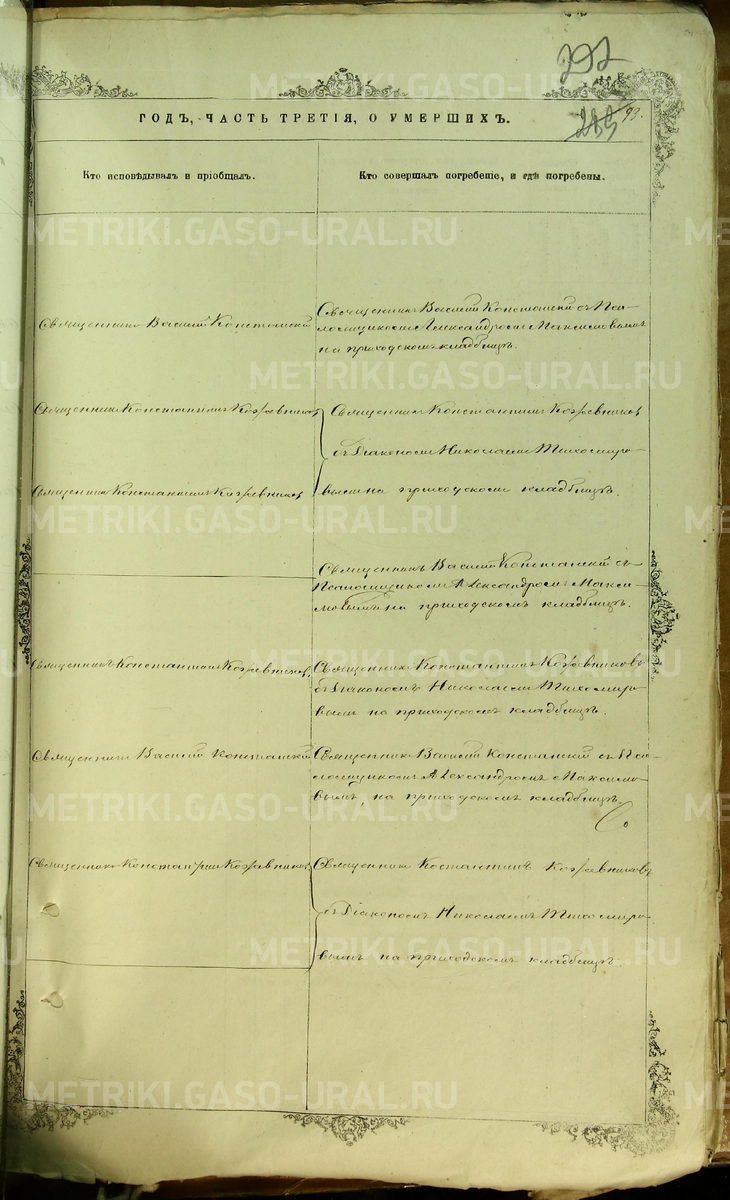 292
283
93.
ГОДЪ, ЧАСТЬ ТРЕТІЯ, О УМЕРШИХЪ.
Кто исповѣдывалъ и пріобщалъ.
Кто совершалъ погребеніе, и гдѣ погребены.
Священникъ Василій Конетанскій
Священникъ Василій Конетанскій съ Пса-
ломщикомъ Александромъ Максимовымъ
на приходскомъ кладбищѣ.
Священникъ Константинъ Кожевниковъ
Священникъ Константинъ Кожевниковъ
съ Діакономъ Николаемъ Тихомиро-
Священникъ Константинъ Кожевниковъ
вымъ на приходскомъ кладбищѣ.
Священникъ Василій Конетанскій съ
Псаломщикомъ Александромъ Макси-
мовымъ на приходскомъ кладбищѣ.
Священникъ Константинъ Кожевниковъ
Священникъ Константинъ Кожевниковъ
съ Діакономъ Николаемъ Тихомиро-
вымъ на приходскомъ кладбищѣ.
Священникъ Василій Конетанскій
Священникъ Василій Конетанскій съ Пса-
ломщикомъ Александромъ Максимо-
вымъ, на приходскомъ кладбищѣ.
Священникъ Константинъ Кожевниковъ
Священникъ Костантинъ Кожевниковъ
съ Діакономъ Николаемъ Тихомиро-
вымъ на приходскомъ кладбищѣ.
METRIKI.GASO-URAL.RU